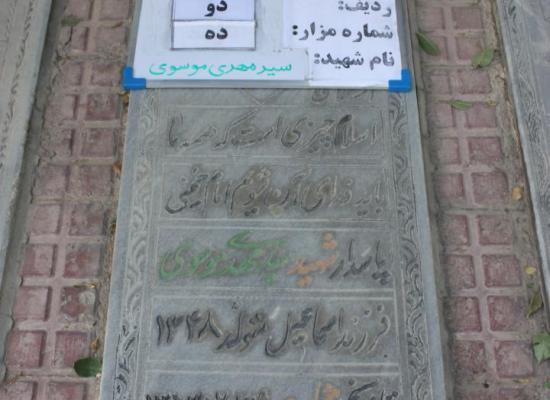 ردیف: دو
شماره مزار: ده
نام شهید: سید مهدی موسوی
اسلام چیزی است که همه ما
باید فدای آن شویم امام خمینی
پاسدار شهید سید مهدی موسوی
فرزند اسماعیل متولد ۱۳۴۸